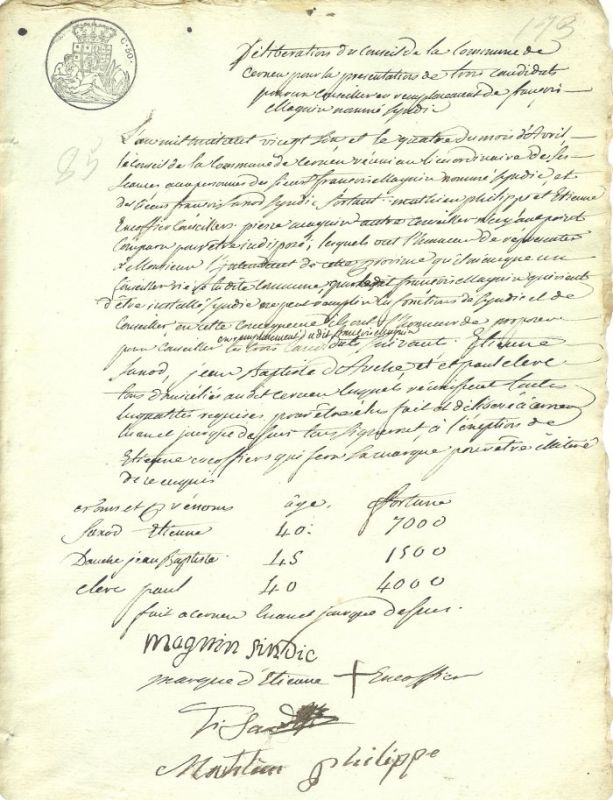 73
C. 50.
Délibération du Conseil de la Commune de
Cerneu pour la présentation de trois candidats
pour un Conseiller en remplacement de françois
Magnin nommé Syndic
85
L'an mil huit cent vingt Six et le quatre du mois d'Avril
le Conseil de la Commune de Cerneu réuni au lieu ordinaire de ses
Séances aux personnes des Sieurs françois Magnin nommé Syndic, et
des Sieurs françois Sanod Syndic Sortant, mathieu philippe et Etienne
Encoffier Conseillers, pierre magnin autre Conseiller n'ayant point
Comparu pour être indisposé, lesquels ont l'honneur de représenter
à Monsieur l'Intendant de cette province qu'il manque un
Conseiller dans la dite Commune, que ledit françois Magnin qui vient
d'être installé Syndic ne peut remplir les fonctions de Syndic et de
Conseiller en cette Conséquence ils ont l'honneur de proposer
en remplacement dudit françois Magnin
pour Conseiller les trois Candidats Suivant. Etienne
Sanod, jean Baptiste et paul clerc
tous domiciliés audit Cerneu lesquels réunissent toutes
les qualités requises, pour être élus fait et délibéré à Cerneu
l'an et jour que dessus tous signeront, à l'exception de
Etienne encoffier qui fera Sa marque pour être illitéré
de ce enquis
noms et Prénoms âge. fortune
Sanod Etienne 40. 7000
Douche jean Baptiste 45 1500
clerc paul 40 4000
fait à cerneu l'an et jour que dessus.
magnin sindic
marque d'Etienne + Encoffier
Mathieu philippe